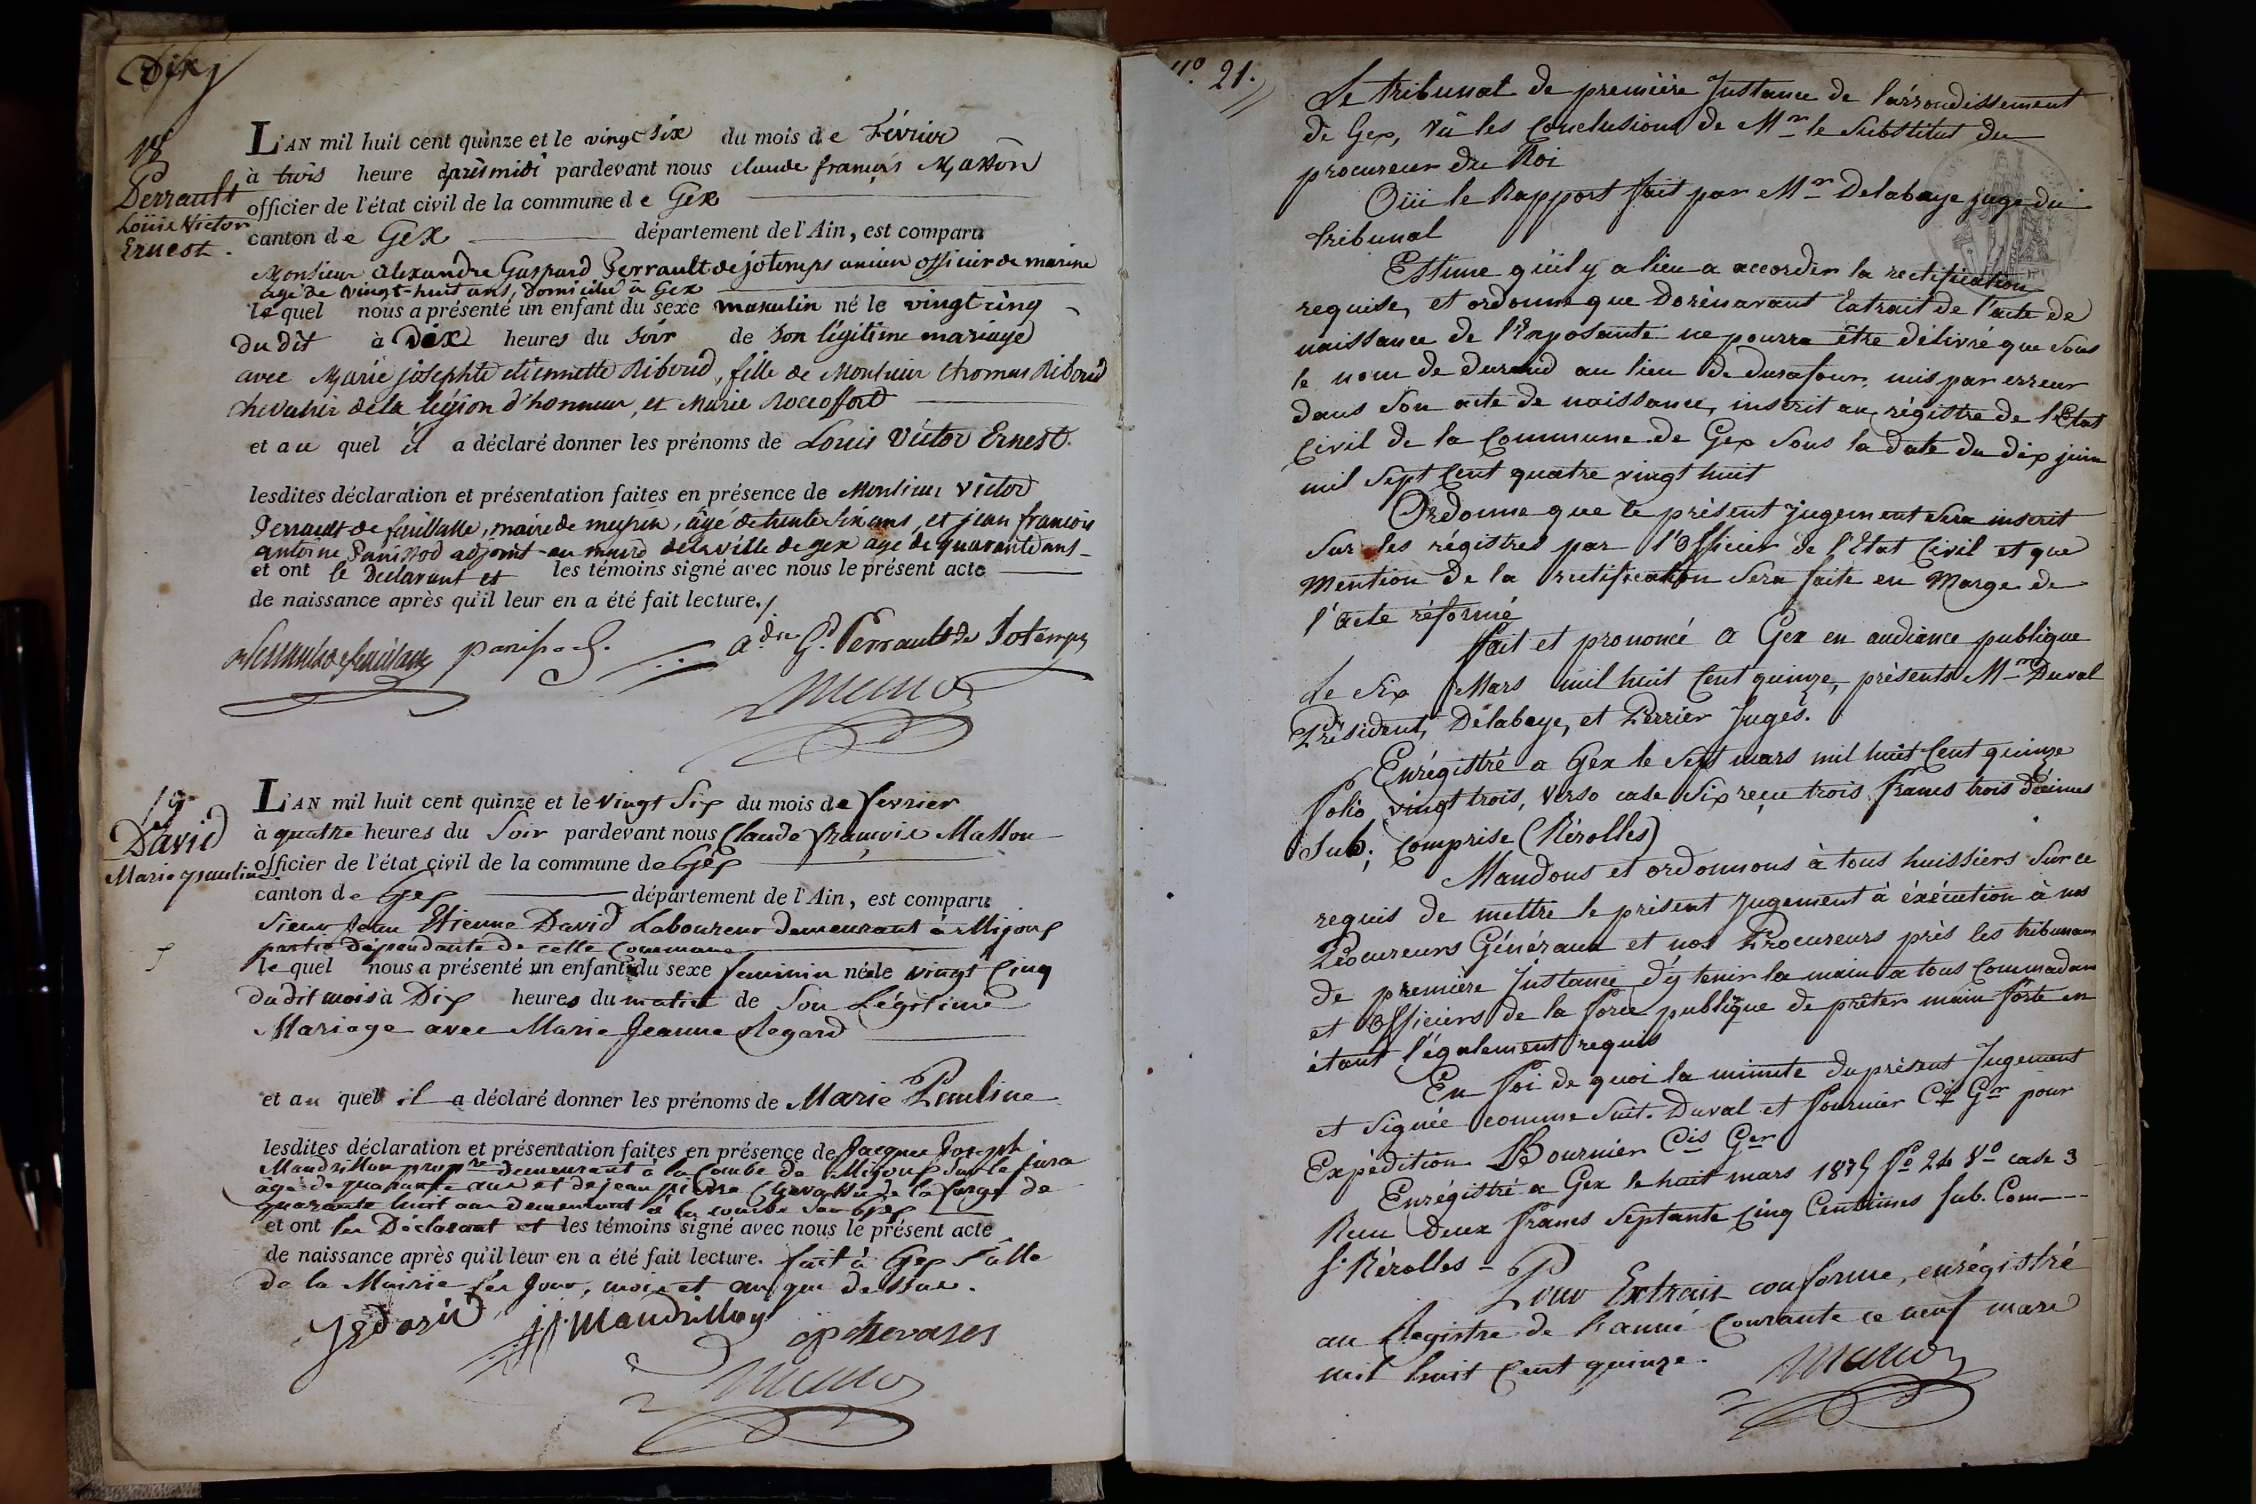 18
Perrault
Louis Victor
Ernest.
L'AN mil huit cent quinze et le vingt six du mois de Février
à trois heure aprèsmidi pardevant nous claude françois Masson
officier de l'état civil de la commune de Gex
canton de Gex département de l'Ain, est comparu
Monsieur Alexandre Gaspard Perrault de jotemps ancien officier de marine
agé de vingt-huit ans, domicilié à Gex
le quel nous a présenté un enfant du sexe masculin né le vingt cinq
du dit à Dix heures du soir de son légitime mariage
avec Marie josephte etiennette Riboud, fille de Monsieur thomas Riboud
chevalier de la légion d'honneur, et Marie Roccoffort
et au quel il a déclaré donner les prénoms de Louis Victor Ernest.
lesdites déclaration et présentation faites en présence de Monsieur Victor
Perrault de feuillasse, maire de meyrin, âgé de trente six ans, et jean françois
antoine Panissod adjoint au maire de la ville de gex age de quarante ans
et ont le declarant et les témoins signé avec nous le présent acte
de naissance après qu'il leur en a été fait lecture./
panissod. a.dre G.d Perrault de Jotemps
19
David
Marie pauline
L'AN mil huit cent quinze et le vingt Six du mois de fevrier
à quatre heures du Soir pardevant nous Claude françois Masson
officier de l'état civil de la commune de Gex
canton de Gex département de l'Ain, est comparu
Sieur Jean Etienne David Laboureur demeurant à Mijoux
partie dependante de cette Commune
le quel nous a présenté un enfant du sexe feminin née le vingt Cinq
du dit mois à Dix heures du matin de Son Légitime
Mariage avec Marie Jeanne Regard
et au quel il a déclaré donner les prénoms de Marie Pauline
lesdites déclaration et présentation faites en présence de Jacques Joseph
Mandrillon prop.re demeurant à la Combe de Mijoux Sur le Jura
âgé de quarante ans et de jean pierre Chevassu de la farge de
quarante huit ans demeurant à la combe Sur Gex
et ont les Déclarant et les témoins signé avec nous le présent acte
de naissance après qu'il leur en a été fait lecture. fait à Gex Salle
de la Mairie les Jour, mois et an que dessus.
JE david JJ Mandrillon jp chevases
N.o 21.
Le tribunal de première Instance de l'arrondissement
de Gex, Vû les Conclusions de Mr le Substitut du
procureur du Roi
Oüi le Rapport fait par Mr Delabaye juge du
tribunal
Estime qu'il y a lieu a accorder la rectification
requise, et ordonne que Dorènavant Extrait de l'acte de
naissance de l'Exposante ne pourra être délivré que sous
le nom de durand au lieu de durafour, mis par erreur
dans Son acte de naissance, inscrit au régistre de l'Etat
Civil de la Commune de Gex Sous la date du dix juin
mil Sept Cent quatre vingt huit
Ordonne que le présent jugement Sera inscrit
Sur les régistres par l'Officier de l'Etat Civil et que
Mention de la rectification Sera faite en Marge de
l'acte réformé
fait et prononcé a Gex en audiance publique
de Six Mars mil huit Cent quinze, présents Mr Duval
Président, Délabaye, et Perrier Juges.
Enrégistré a Gex le Sept mars mil huit Cent quinze
folio vingt trois, verso case Six reçu trois francs trois décimes
Sub; Comprise (Rérolles)
Mandons et ordonnons à tous huissiers Sur ce
requis de mettre le présent Jugement à éxécution à nos
Procureurs Généraux et nos Procureurs près les tribunaux
de première Instance d'y tenir la main a tous Commadans
et Officiers de la force publique de prêter main forte en
étant légalement requis
En foi de quoi la minute du présent Jugement
et Signée comme Suit. Duval et fournier Cis Gr pour
Expédition Fournier Cis Ger
Enrégistré a Gex le huit mars 1815 fo 24 Vo case 3
Recu Deux francs Septante Cinq Centimes Sub. Com
S: Rérolles
Pour Extrait conforme, enrégistré
au Registre de l'année Courante ce neuf mars
mil huit Cent quinze.